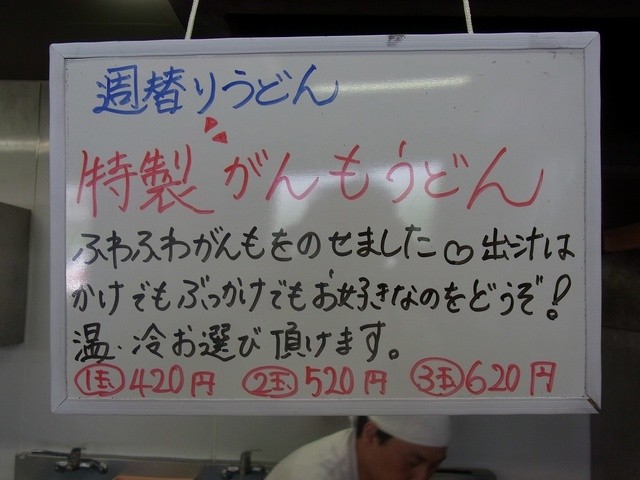 週替りうどん
特製がんもうどん
ふわふわがんもをのせました♡出汁は
かけでもぶっかけでもお好きなのをどうぞ!
温・冷お選び頂けます。
1玉 420円 2玉 520円 3玉 620円